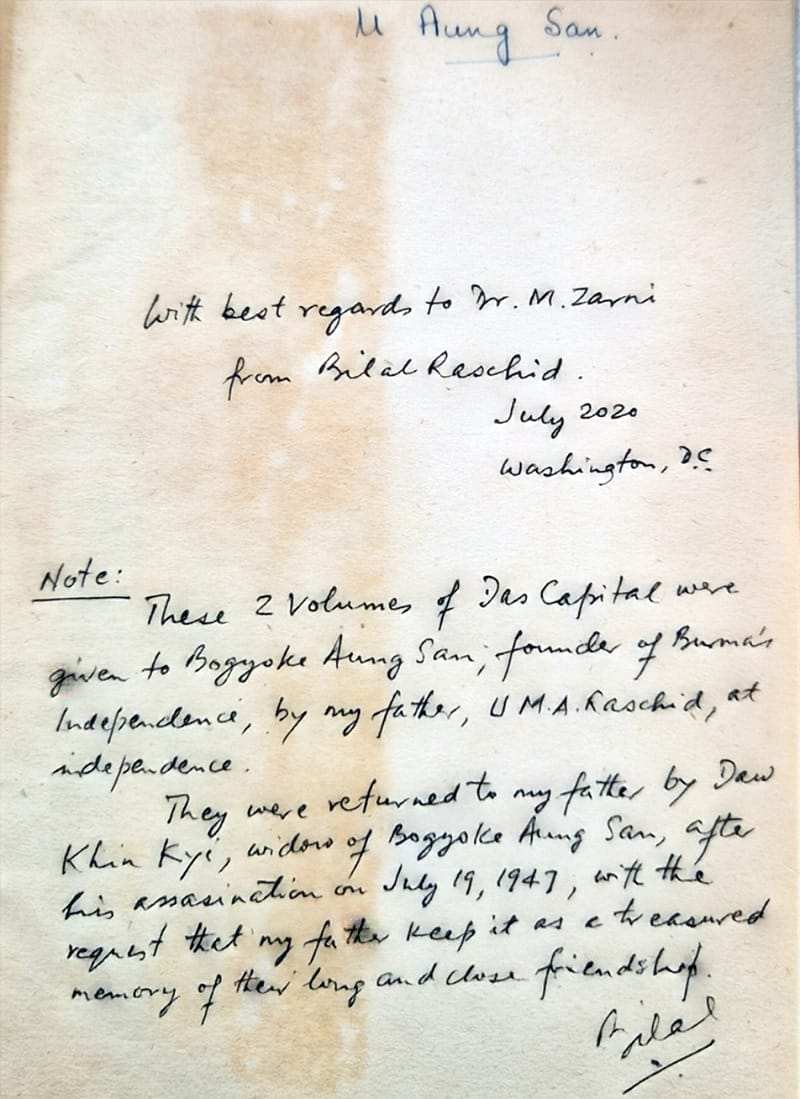 U Aung San.
With best regards to Dr. M. Zarni
from Bilal Raschid.
July 2020
Washington, D.C.
Note:
These 2 Volumes of Das Capital were
given to Bogyoke Aung San, founder of Burma's
Independence, by my father, U M.A. Raschid, at
independence.
They were returned to my father by Daw
Khin Kyi, widow of Bogyoke Aung San, after
his assasination on July 19, 1947, with the
request that my father keep it as a treasured
memory of their long and close friendship.
Bilal